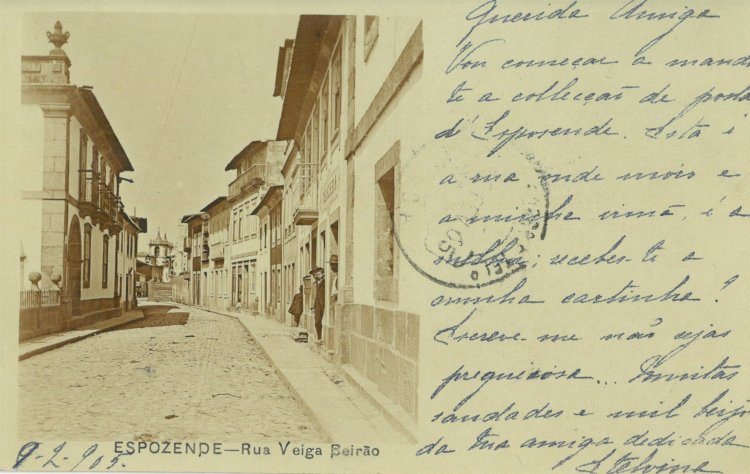 Querida Amiga
Vou começar a manda
te a collecçaõ de posta
d'Espozende. Esta é
a rua onde moro e
a minha irmã, é a
melhor; recebes-te a
minha cartinha?
Escreve-me não sejas
preguiçosa... Muitas
saudades e mil beijo
da tua amiga dedicada
Etelvina
ESPOZENDE—Rua Veiga Beirão
9-2-905.